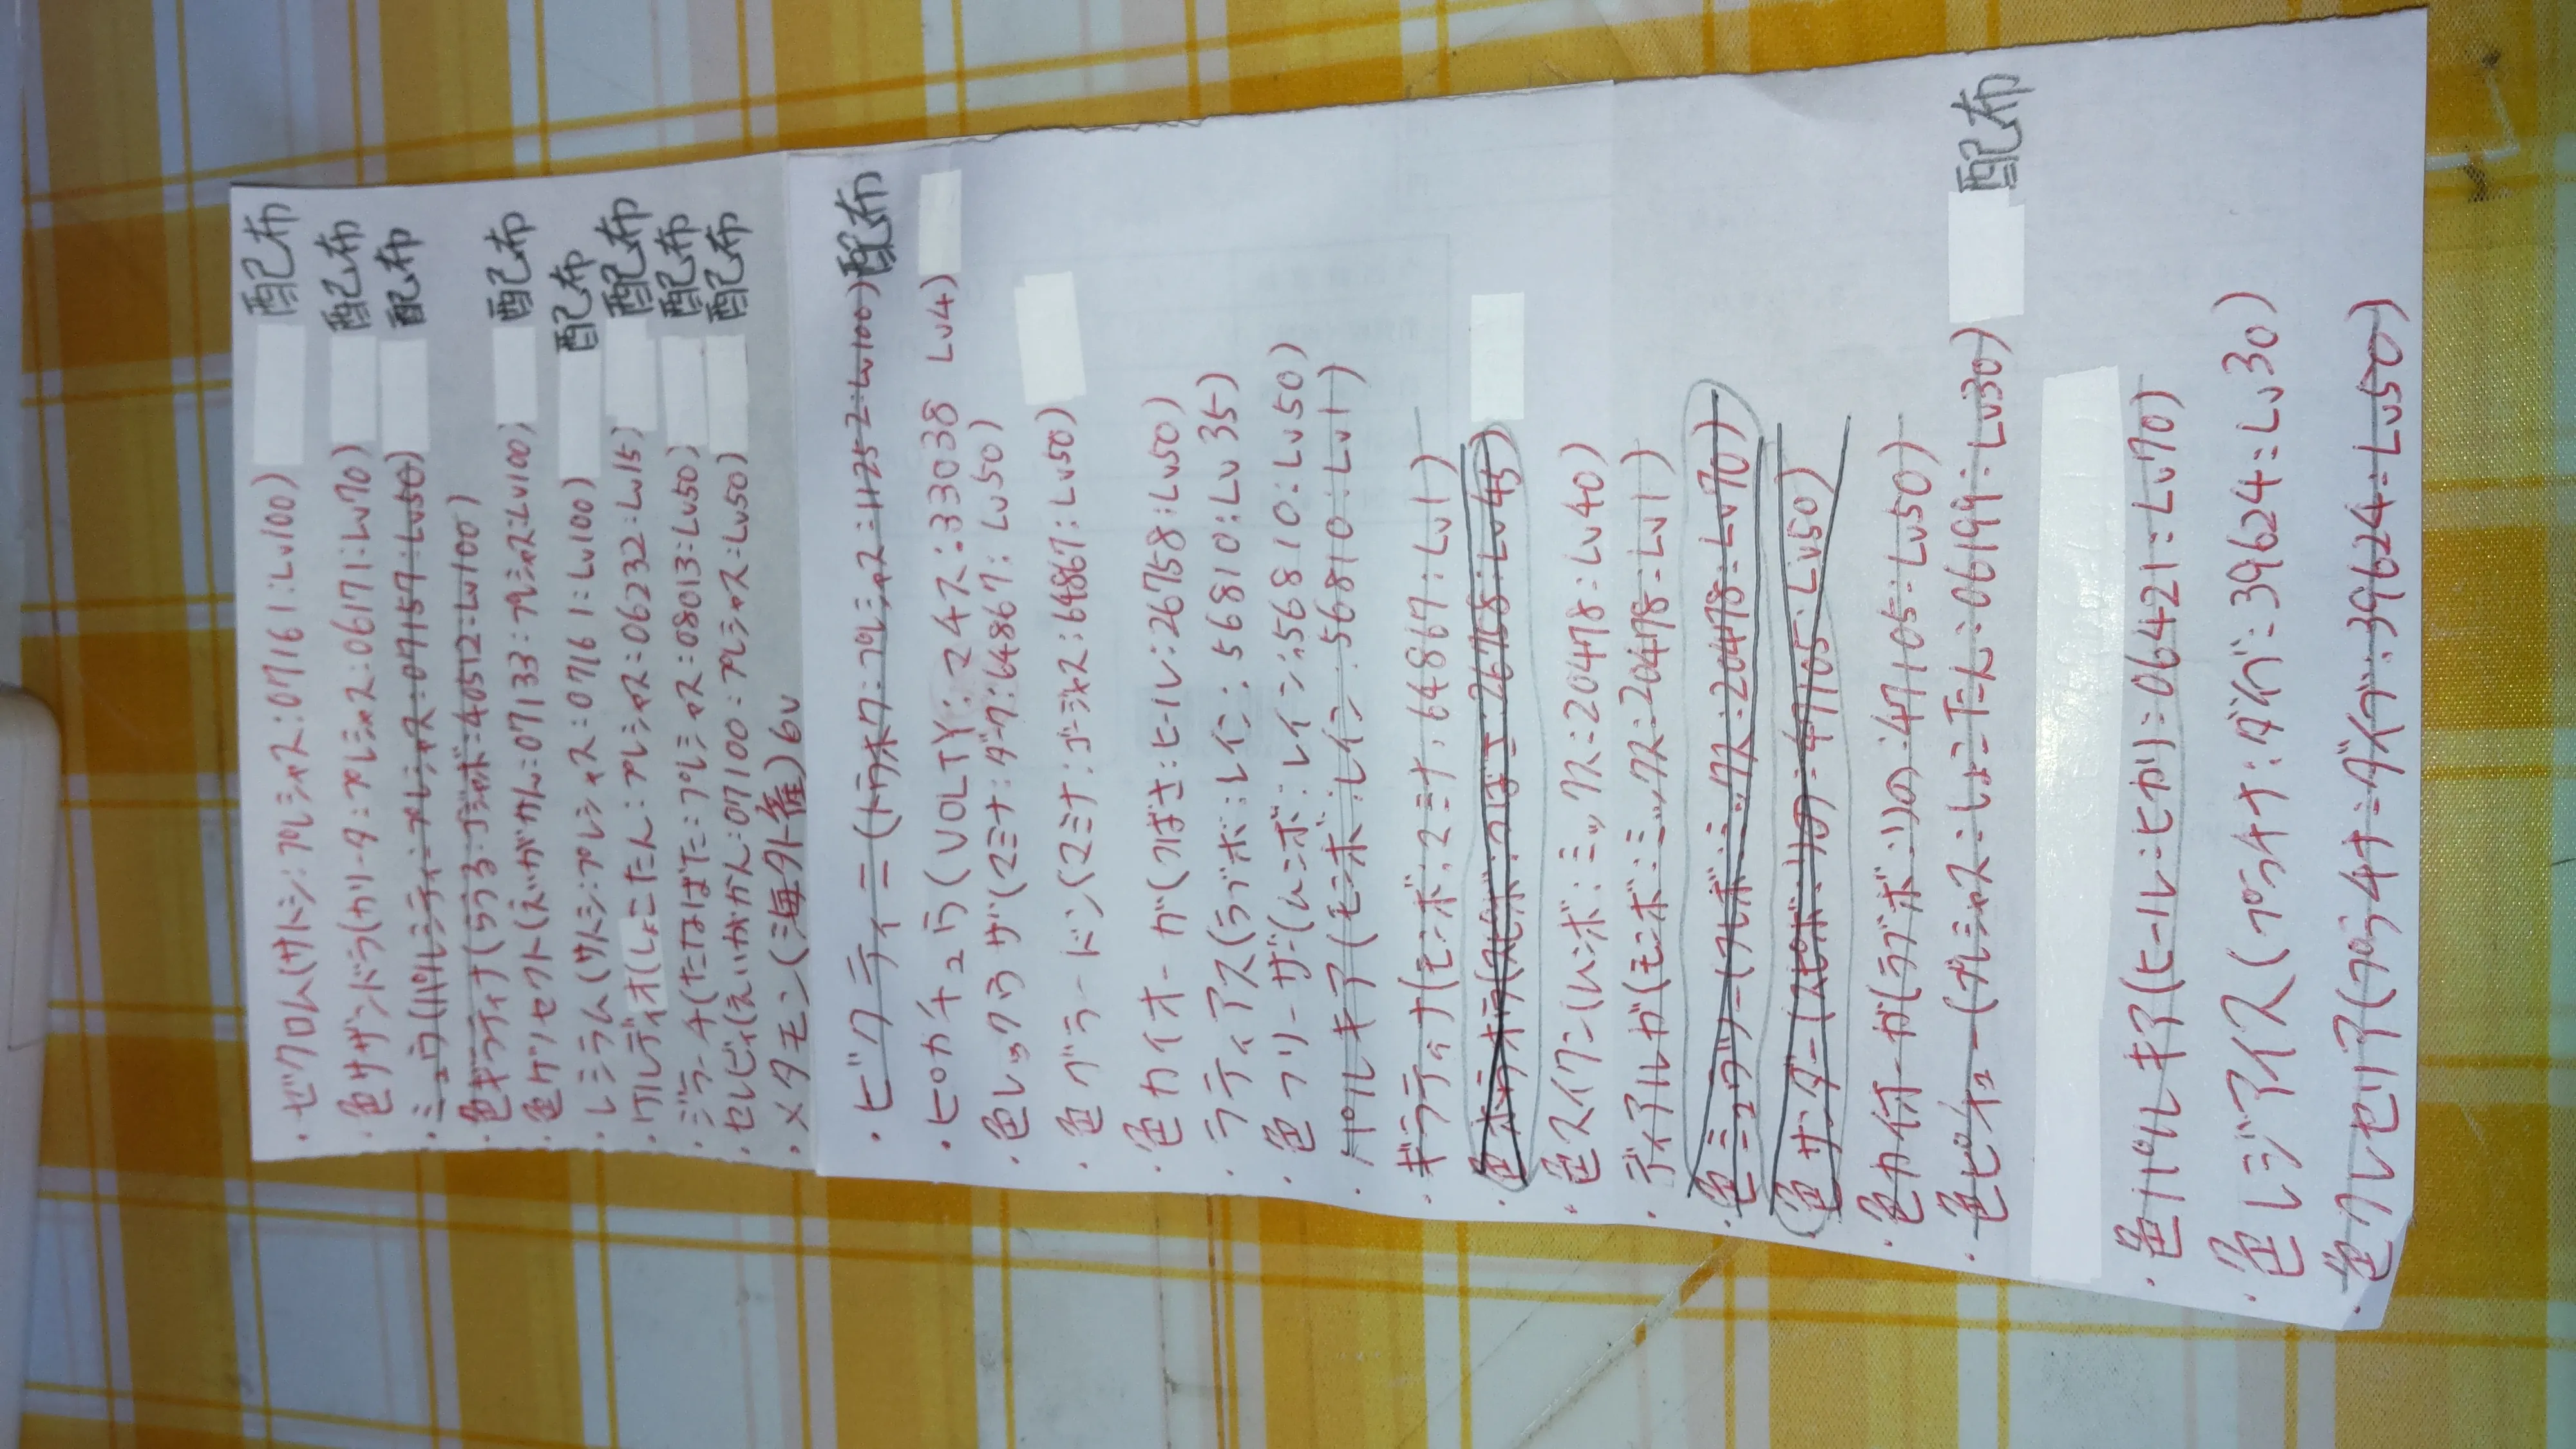 ・ゼクロム(サトシ:プレシャス:07161:Lv100) 配布
・色サザンドラ(カリータ:プレシャス:06171:Lv70) 配布
・ミュウ(パルシティ:プレシャス:07157:Lv50) 配布
・色ギラティナ(うつろ:ゴジャボ:40512:Lv100)
・色ゲノセクト(えいがかん:07133:プレシャス:Lv100) 配布
・レシラム(サトシ:プレシャス:07161:Lv100) 配布
・ケルディオ(しょこたん:プレシャス:06232:Lv15) 配布
・ジラーチ(たなばた:プレシャス:08013:Lv50) 配布
・セレビィ(えいがかん:07100:プレシャス:Lv50) 配布
・メタモン(海外産)6V
・ビクティニ(トウホク:プレシャス:11252:Lv100) 配布
・ピカチュウ(VOLTY:マキス:33038 Lv4)
・色レックウザ(マミナ:ダーク:64867:Lv50)
・色グラードン(マミナ:ゴージャス:64867:Lv50)
・色カイオーガ(つばさ:ヒール:26758:Lv50)
・ラティアス(ラブボ:レイン:56810:Lv35)
・色フリーザー(ムンボ:レイン:56810:Lv50)
・パルキア(モンボ:レイン:56810:Lv1)
・ギラティナ(モンボ:マミナ:64867:Lv1)
・色スイクン(ムンボ:ミックス:20478:Lv40)
・ディアルガ(モンボ:ミックス:20478:Lv1)
・色ミュウツー(フレボ:ミックス:20478:Lv70)
・色サンダー(スピボ:リの:47105:Lv50)
・色カイオーガ(ラブボ:リの:47105:Lv50)
・色ピチュー(プレシャス:しょこたん:06199:Lv30) 配布
・色パルキア(ヒール:ヒカリ:06421:Lv70)
・色レジアイス(プラチナ:ダイブ:39624:Lv30)
・色クレセリア(プラチナ:ダイブ:39624:Lv50)